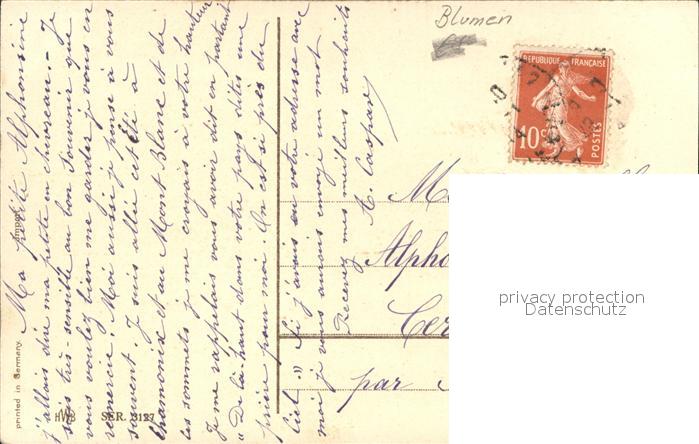 Blumen
REPUBLIQUE FRANÇAISE
10 c
POSTES
Ma petite Alphonsine
j'allais dire ma petite en chevreau. - Je
suis très-sensible au bon souvenir que
vous voulez bien me garder je vous en
remercie. Moi aussi je pense à vous
souvent. Je suis allée cet été à
Chamonix et au Mont Blanc et de
les sommets je me croyais à votre hauteur
Je me rappelais vous avoir dit en partant
"De là-haut dans votre pays dites une
prière pour moi. On est si près du
ciel !" Si j'avais eu votre adresse avec
moi je vous aurais envoyé un mot
Recevez mes meilleurs souhaits
A. Caspar
Alpho
Cer
par
privacy protection
Datenschutz
Import
printed in Germany.
HWB SER. 3127